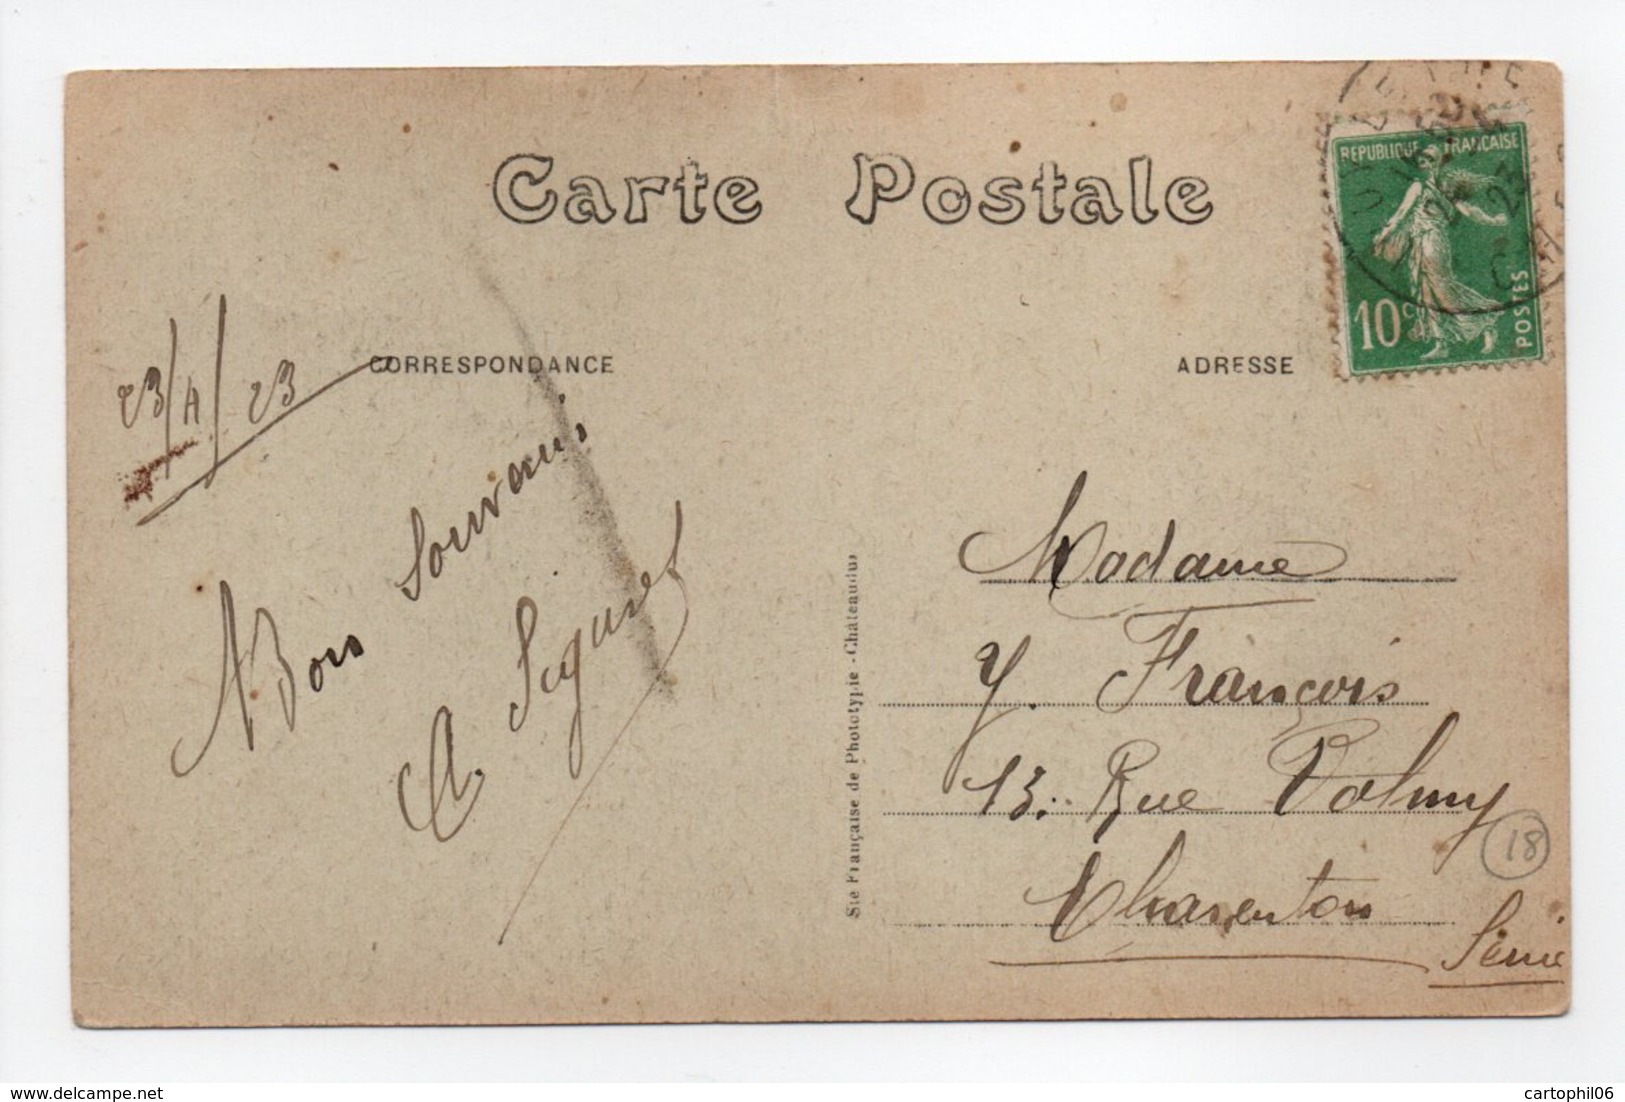 Carte Postale
CORRESPONDANCE
ADRESSE
REPUBLIQUE FRANÇAISE
10c
POSTES
23/4/23
Bon Souvenir
A.
Madame
Y. François
13. Rue Valmy
Charenton
Seine
18
Sté Française de Phototypie - Châteaudun
delcampe.net
cartophil06